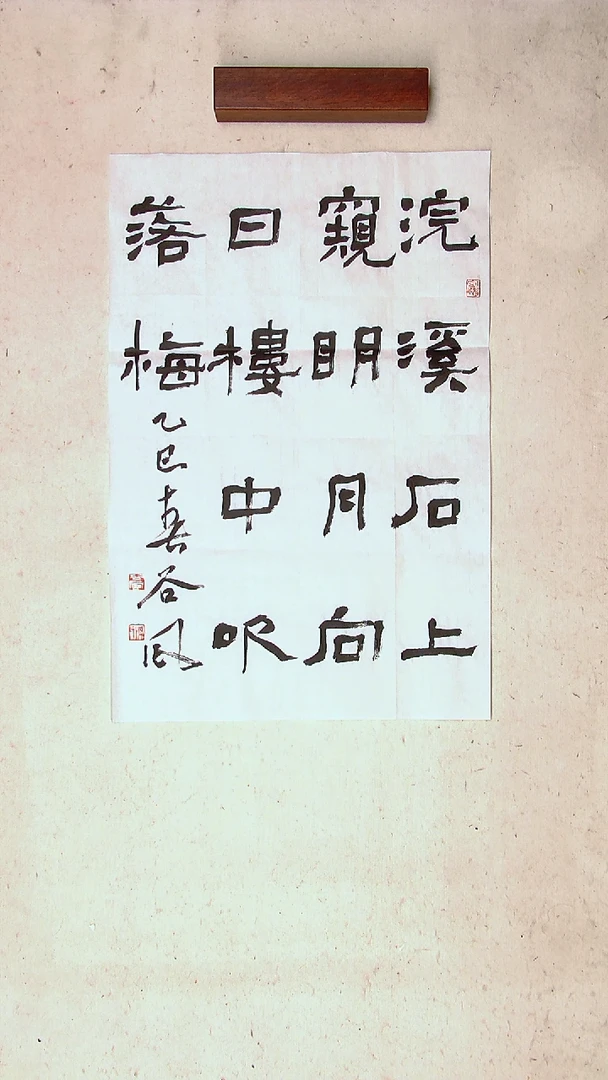 浣溪石上
窺明月向
日樓中吹
落梅
乙巳春谷風